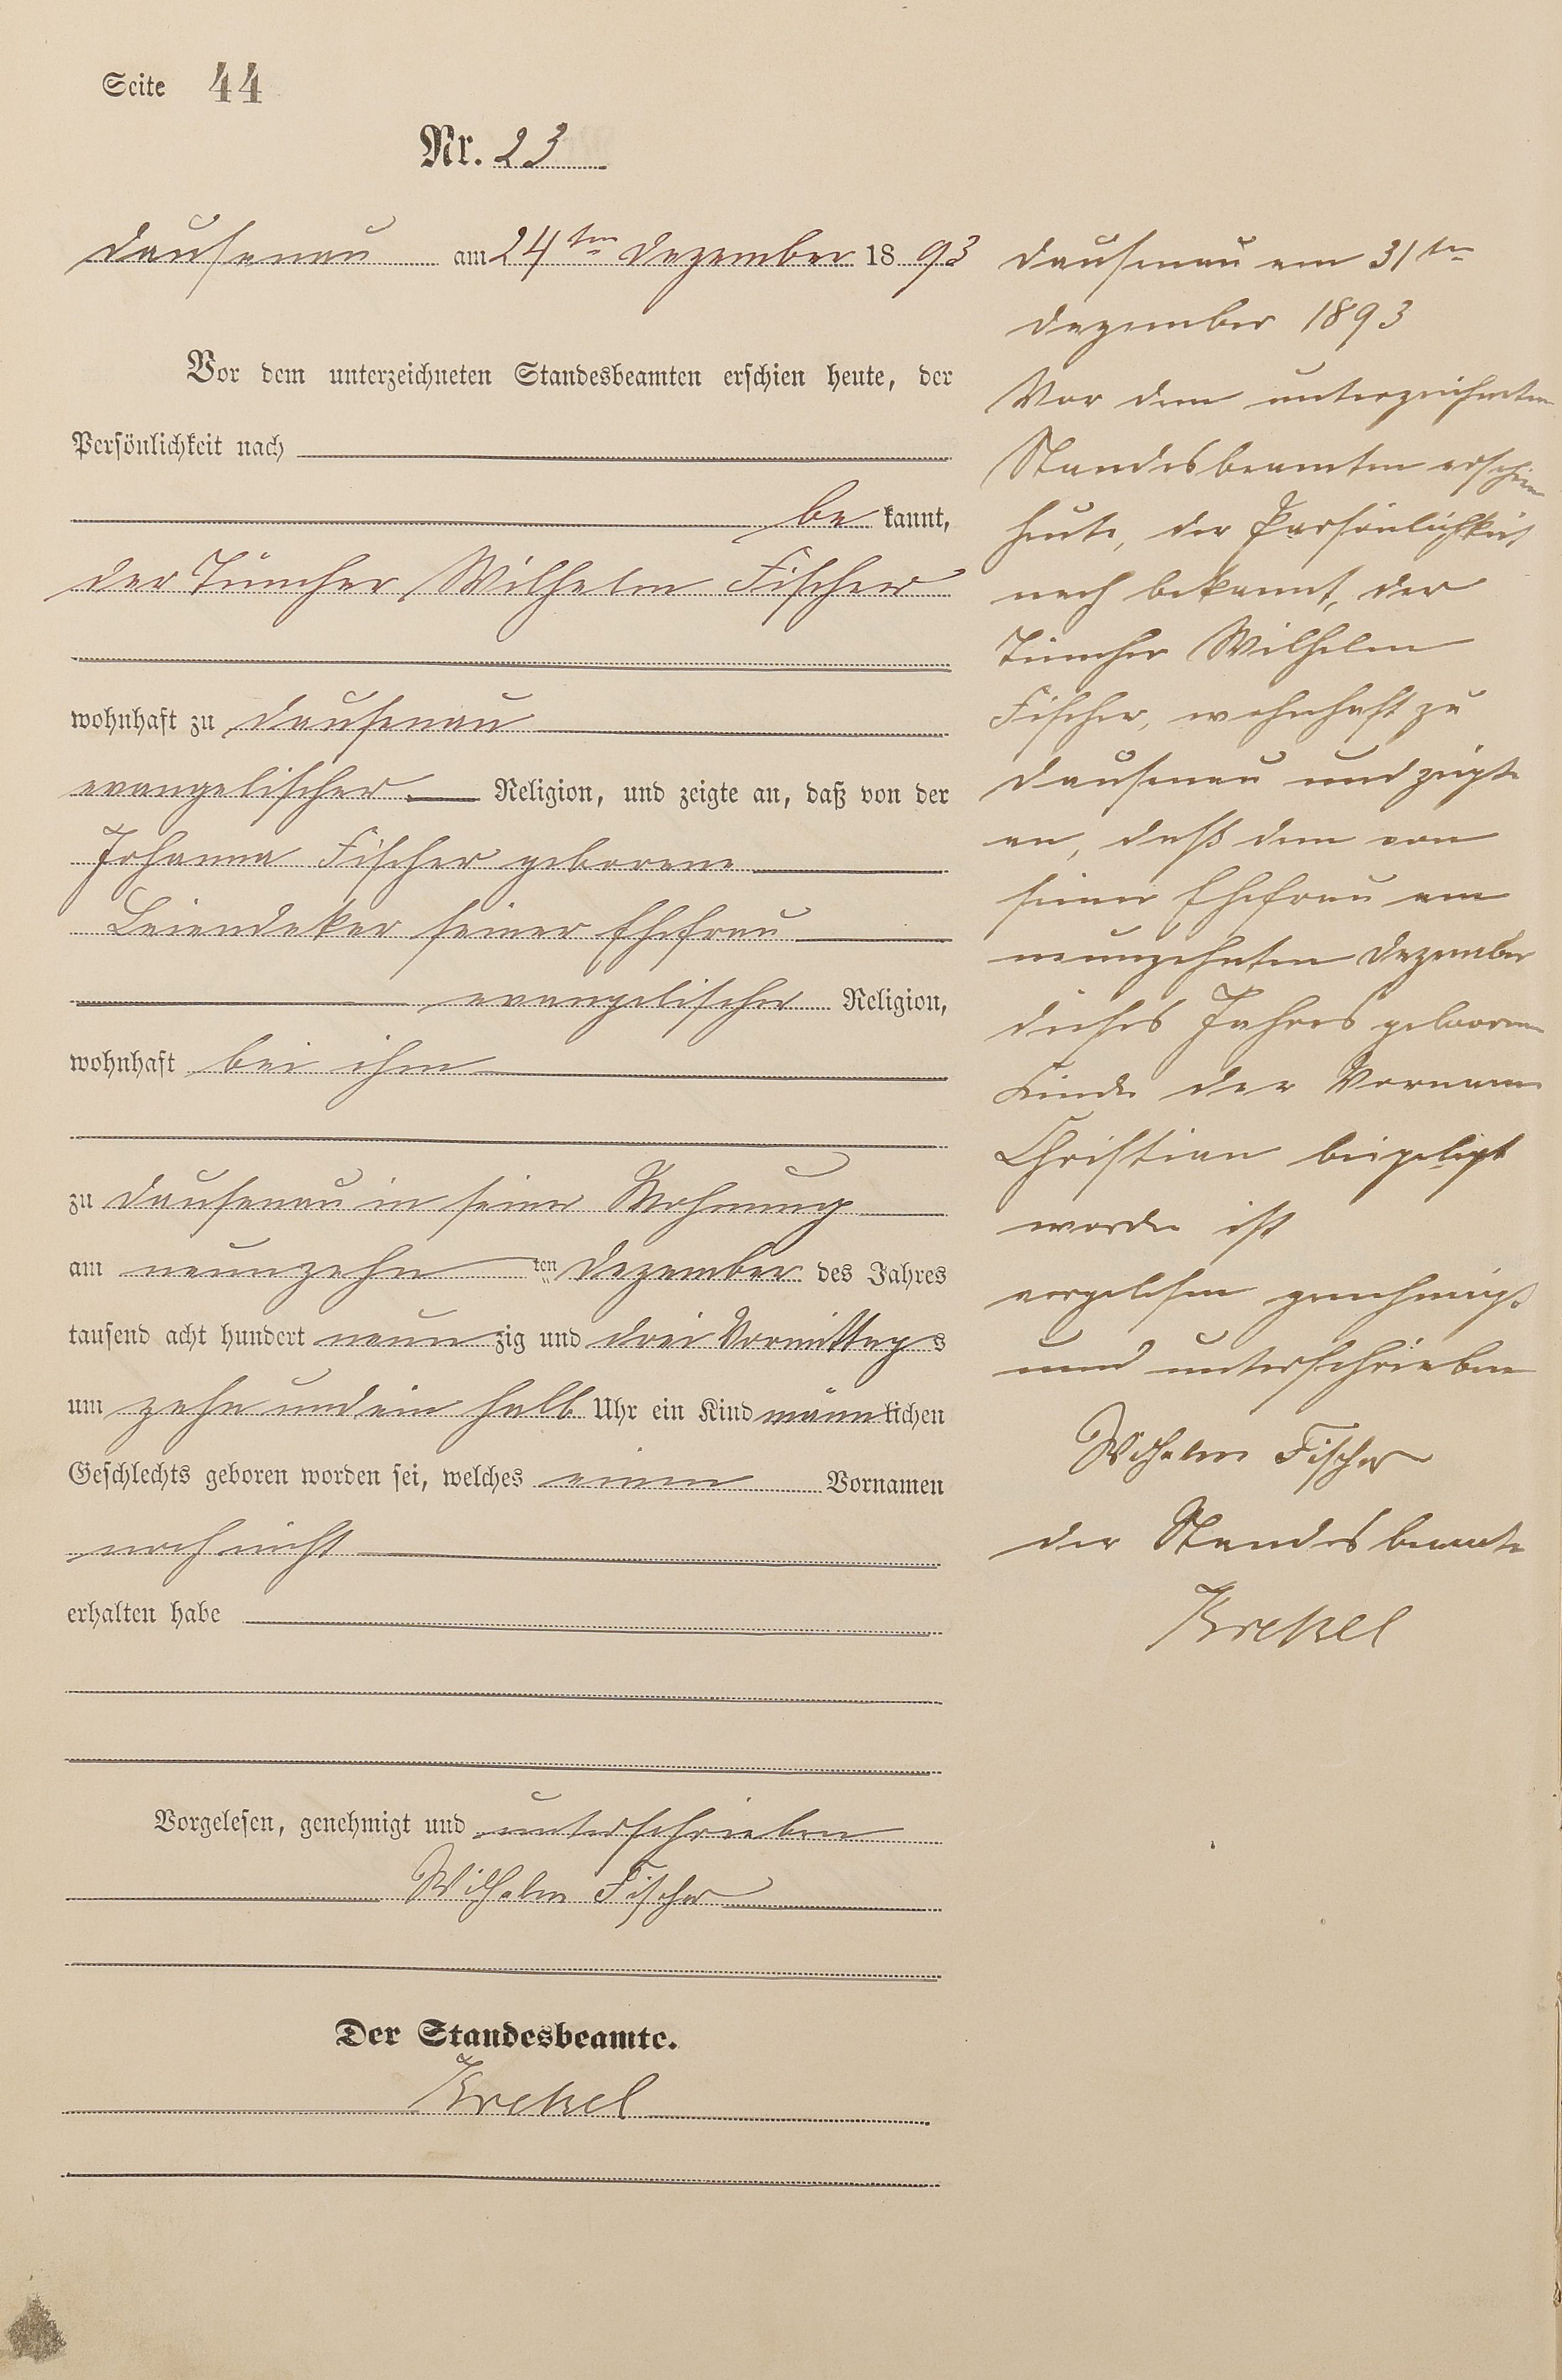 Seite 44
Nr. 23
Dausenau am 24ten Dezember 1893
Vor dem unterzeichneten Standesbeamten erschien heute, der
Persönlichkeit nach
be kannt,
der Tüncher Wilhelm Fischer
wohnhaft zu Dausenau
evangelischer Religion, und zeigte an, daß von der
Johanna Fischer geborene
Leiendeker seiner Ehefrau
evangelischer Religion,
wohnhaft bei ihm
zu Dausenau in seiner Wohnung
am neunzehn ten Dezember des Jahres
tausend acht hundert neun zig und drei Vormittags
um zehn und ein halb Uhr ein Kind männlichen
Geschlechts geboren worden sei, welches einen Vornamen
noch nicht
erhalten habe
Vorgelesen, genehmigt und unterschrieben
Wilhelm Fischer
Der Standesbeamte.
Krekel
Dausenau am 31ten
Dezember 1893
Vor dem unterzeichneten
Standesbeamten erschien
heute, der Persönlichkeit
nach bekannt, der
Tüncher Wilhelm
Fischer, wohnhaft zu
Dausenau und zeigte
an, daß dem von
seiner Ehefrau am
neunzehnten Dezember
dieses Jahres geboren
Kinde der Vorname
Christian beigelegt
worden ist
vorgelesen genehmigt
und unterschrieben
Wilhelm Fischer
der Standesbeamte
Krekel